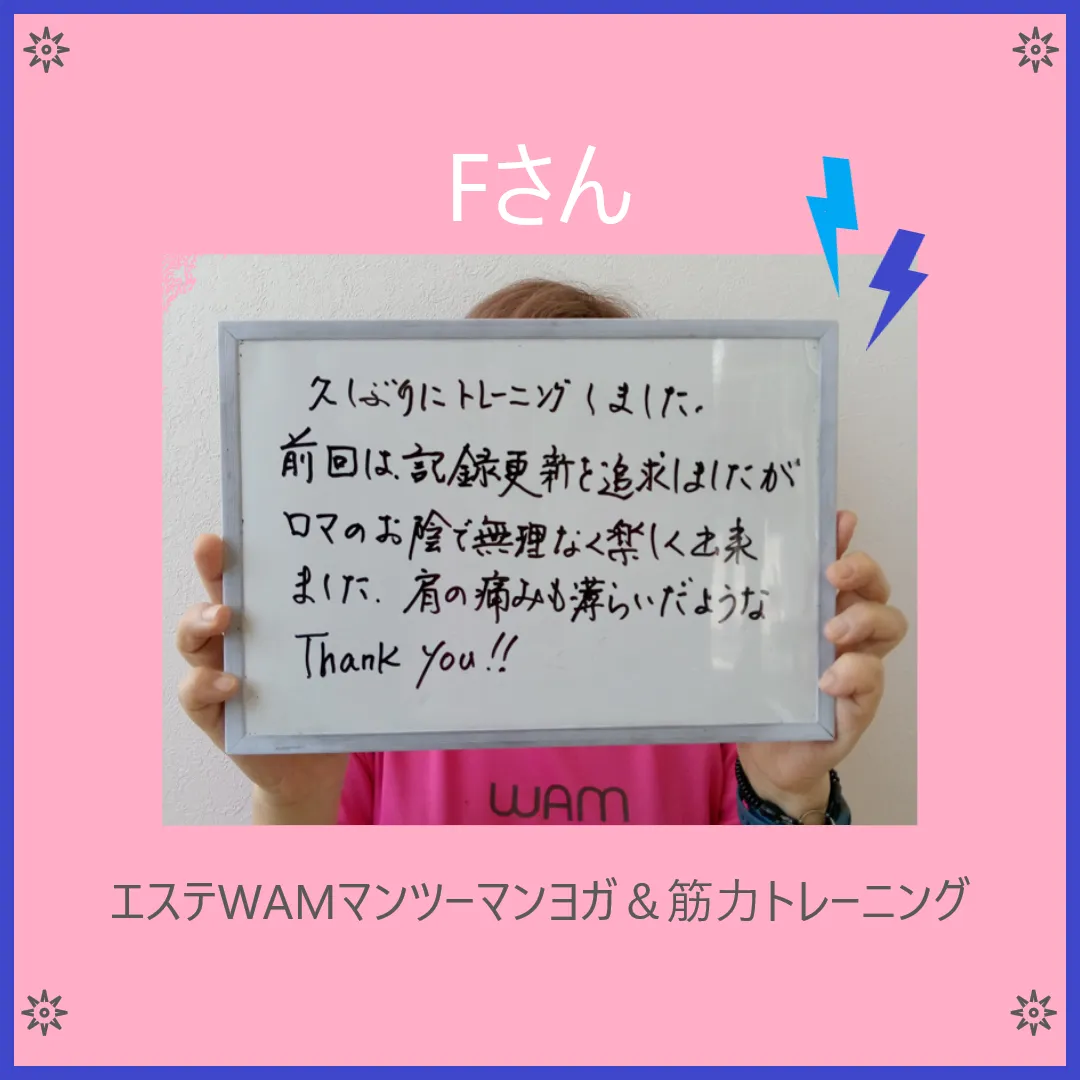 Fさん
久しぶりにトレーニングしました。
前回は、記録更新を追求しましたが
ロマのお陰で無理なく楽しく出来
ました。肩の痛みも薄らいだような
Thank you!!
WAM
エステWAMマンツーマンヨガ&筋力トレーニング